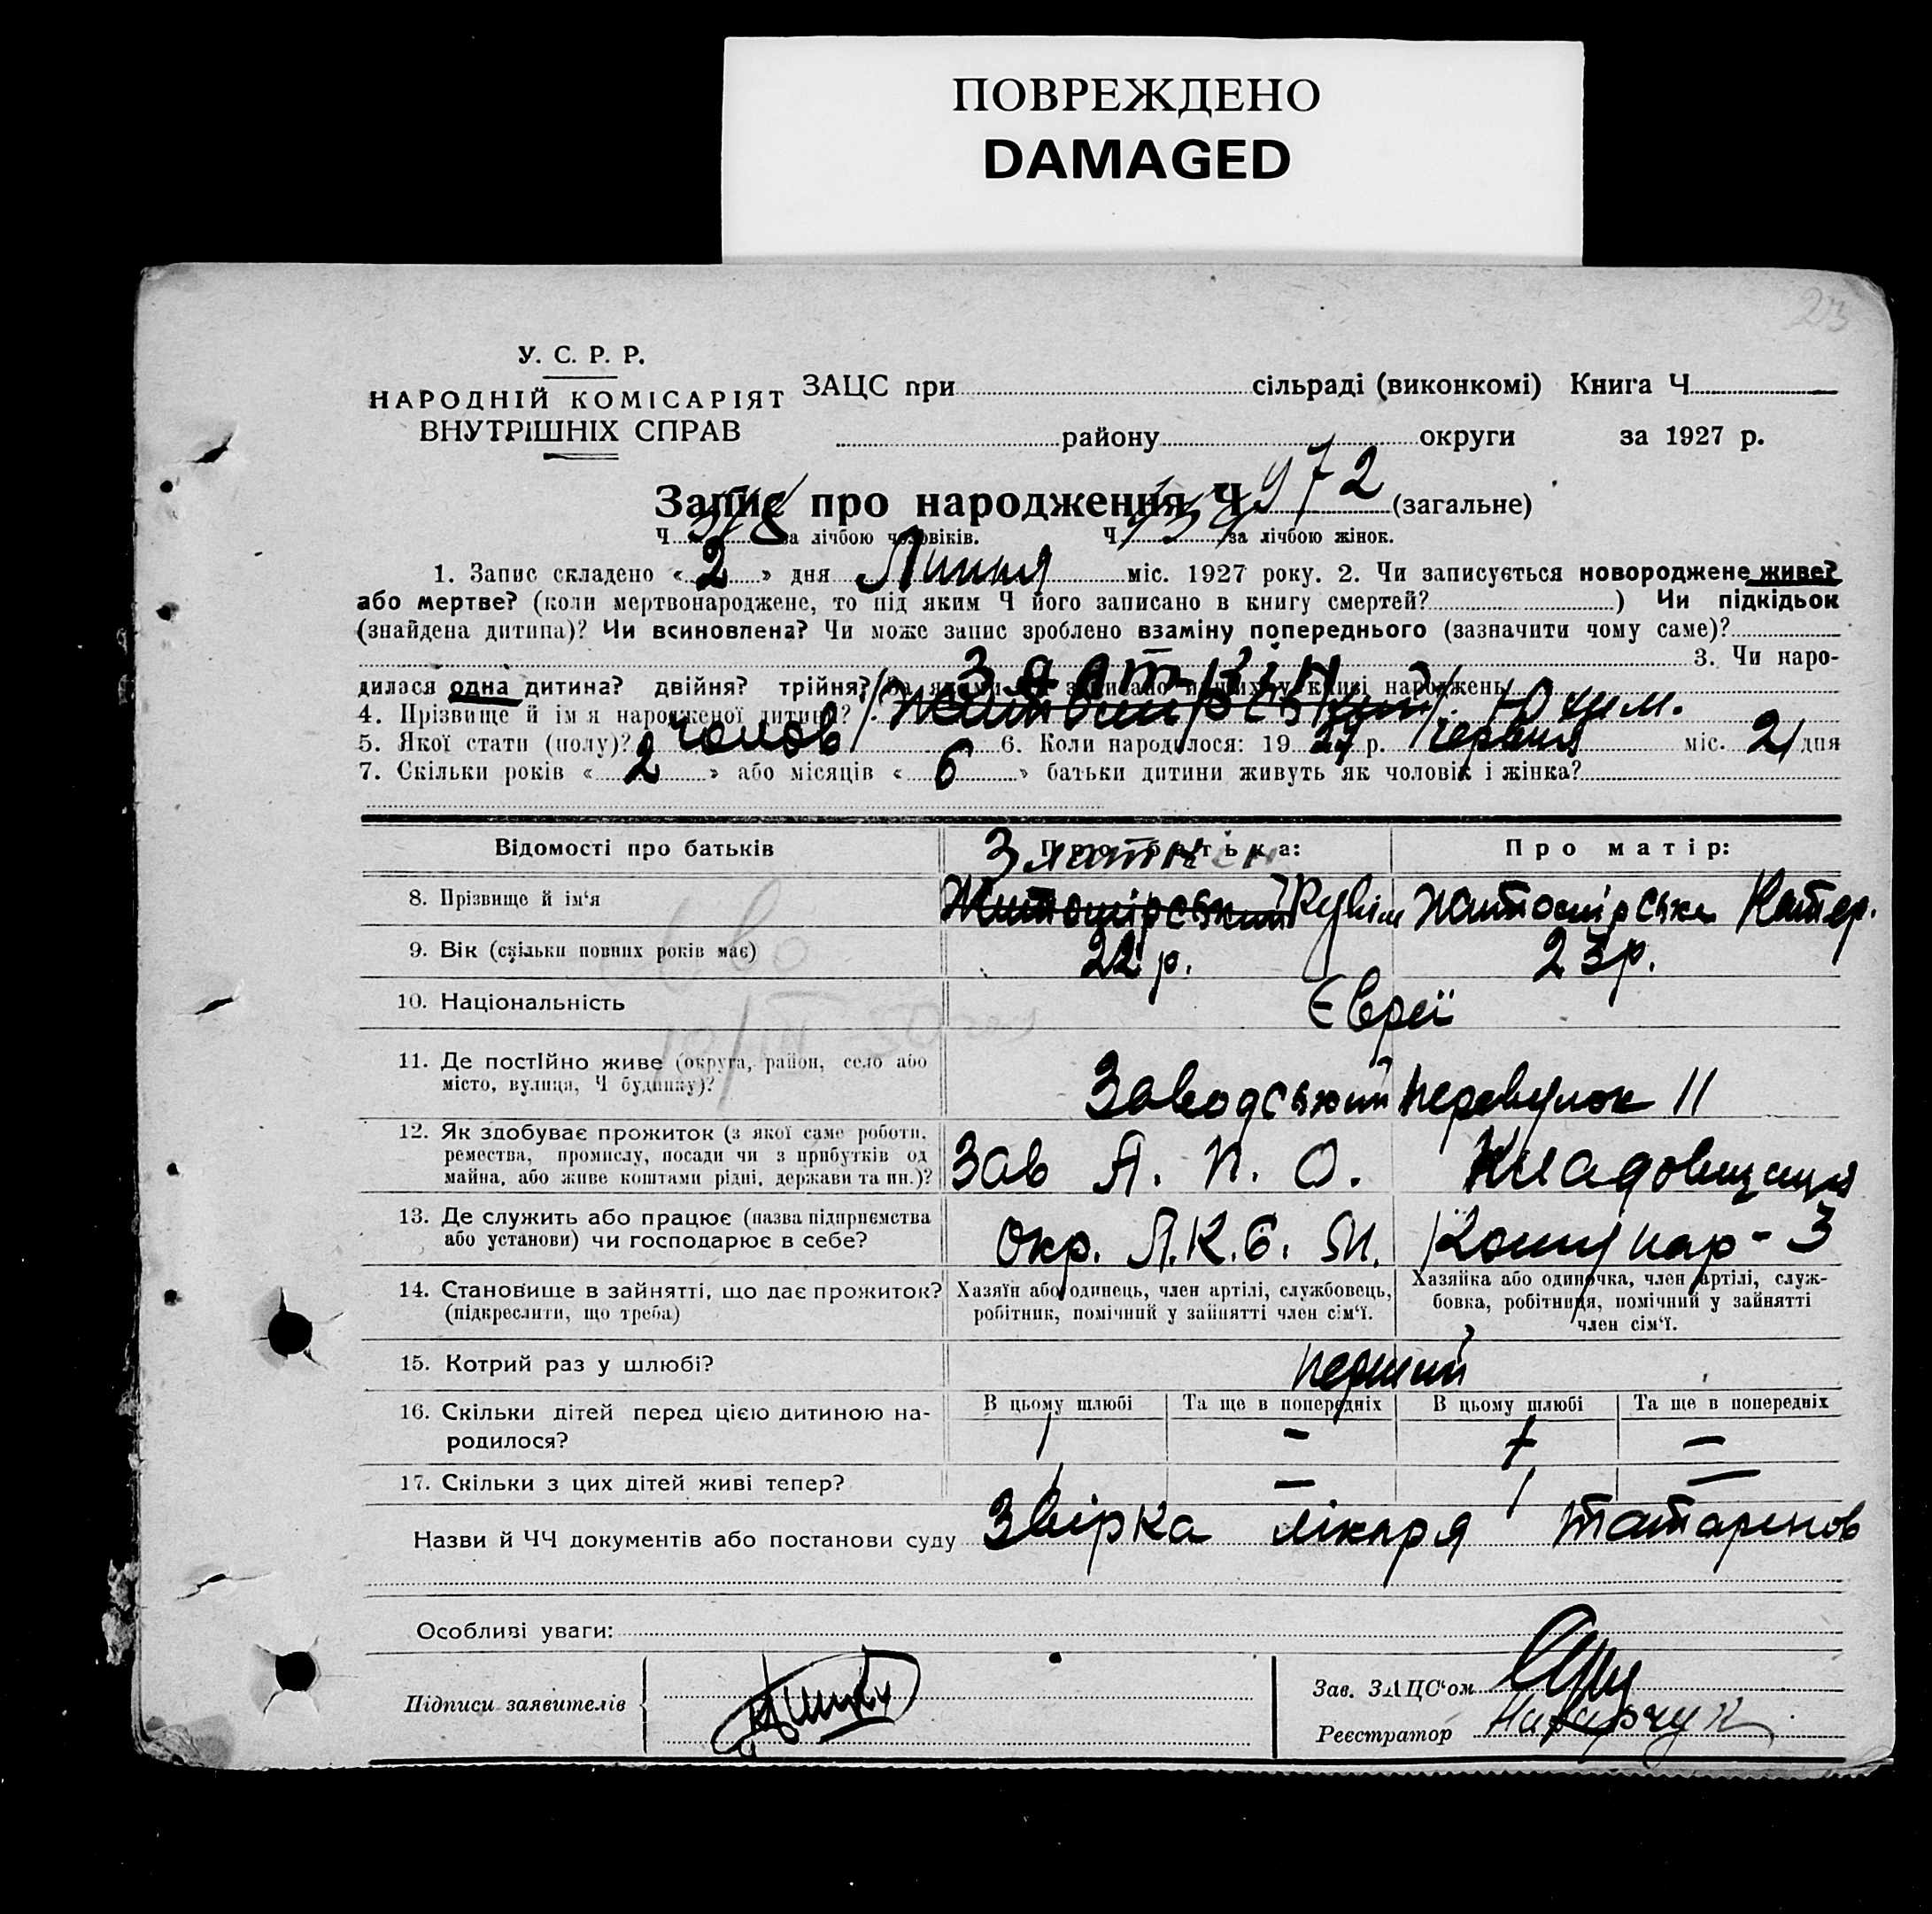 ПОВРЕЖДЕНО
DAMAGED
23
У. С. Р. Р.
НАРОДНІЙ КОМІСАРІЯТ
ВНУТРІШНІХ СПРАВ
ЗАЦС при сільраді (виконкомі) Книга Ч.
району округи за 1927 р.
Запис про народження Ч 972 (загальне)
Ч за лічбою чоловіків. Ч за лічбою жінок.
1. Запис складено «2» дня Липня міс. 1927 року. 2. Чи записується новороджене живе?
або мертве? (коли мертвонароджене, то під яким Ч його записано в книгу смертей? ) Чи підкідьок
(знайдена дитина)? Чи всиновлена? Чи може запис зроблено взаміну попереднього (зазначити чому саме)?
3. Чи наро-
дилася одна дитина? двійня? трійня? За якими ЧЧ записано інших у книзі народжень
Златкін
4. Прізвище й ім'я народженої дитини? Житомірський Юхим.
5. Якої стати (полу)? Чолов 6. Коли народилося: 19 27 р. Червня міс. 21 дня
7. Скільки років «2» або місяців «6» батьки дитини живуть як чоловік і жінка?
Відомості про батьків Про батька: Про матір:
Златкін
8. Прізвище й ім'я Житомірський Рувім Житомірська Катер.
9. Вік (скільки повних років має) 22 р. 23 р.
10. Національність Євреї
11. Де постійно живе (округа, район, село або
місто, вулиця, Ч будинку)? Заводський перевулок 11
12. Як здобуває прожиток (з якої саме роботи,
ремества, промислу, посади чи з прибутків од
майна, або живе коштами рідні, держави та ин.)? Зав А. П. О. Кладовщиця
13. Де служить або працює (назва підприємства
або установи) чи господарює в себе? Окр. Л.К.С.М. Комунар-3
14. Становище в зайнятті, що дає прожиток?
(підкреслити, що треба)
Хазяїн або одинець, член артілі, службовець,
робітник, помічний у зайнятті член сім'ї.
Хазяйка або одиночка, член артілі, служ-
бовка, робітниця, помічний у зайнятті
член сім'ї.
15. Котрий раз у шлюбі? перший
16. Скільки дітей перед цією дитиною на-
родилося?
В цьому шлюбі Та ще в попередніх В цьому шлюбі Та ще в попередніх
1 – 1 –
17. Скільки з цих дітей живі тепер? 1 – 1 –
Назви й ЧЧ документів або постанови суду Звірка лікаря Татаринов
Особливі уваги:
Підписи заявителів
Зав. ЗАЦС'ом
Реєстратор